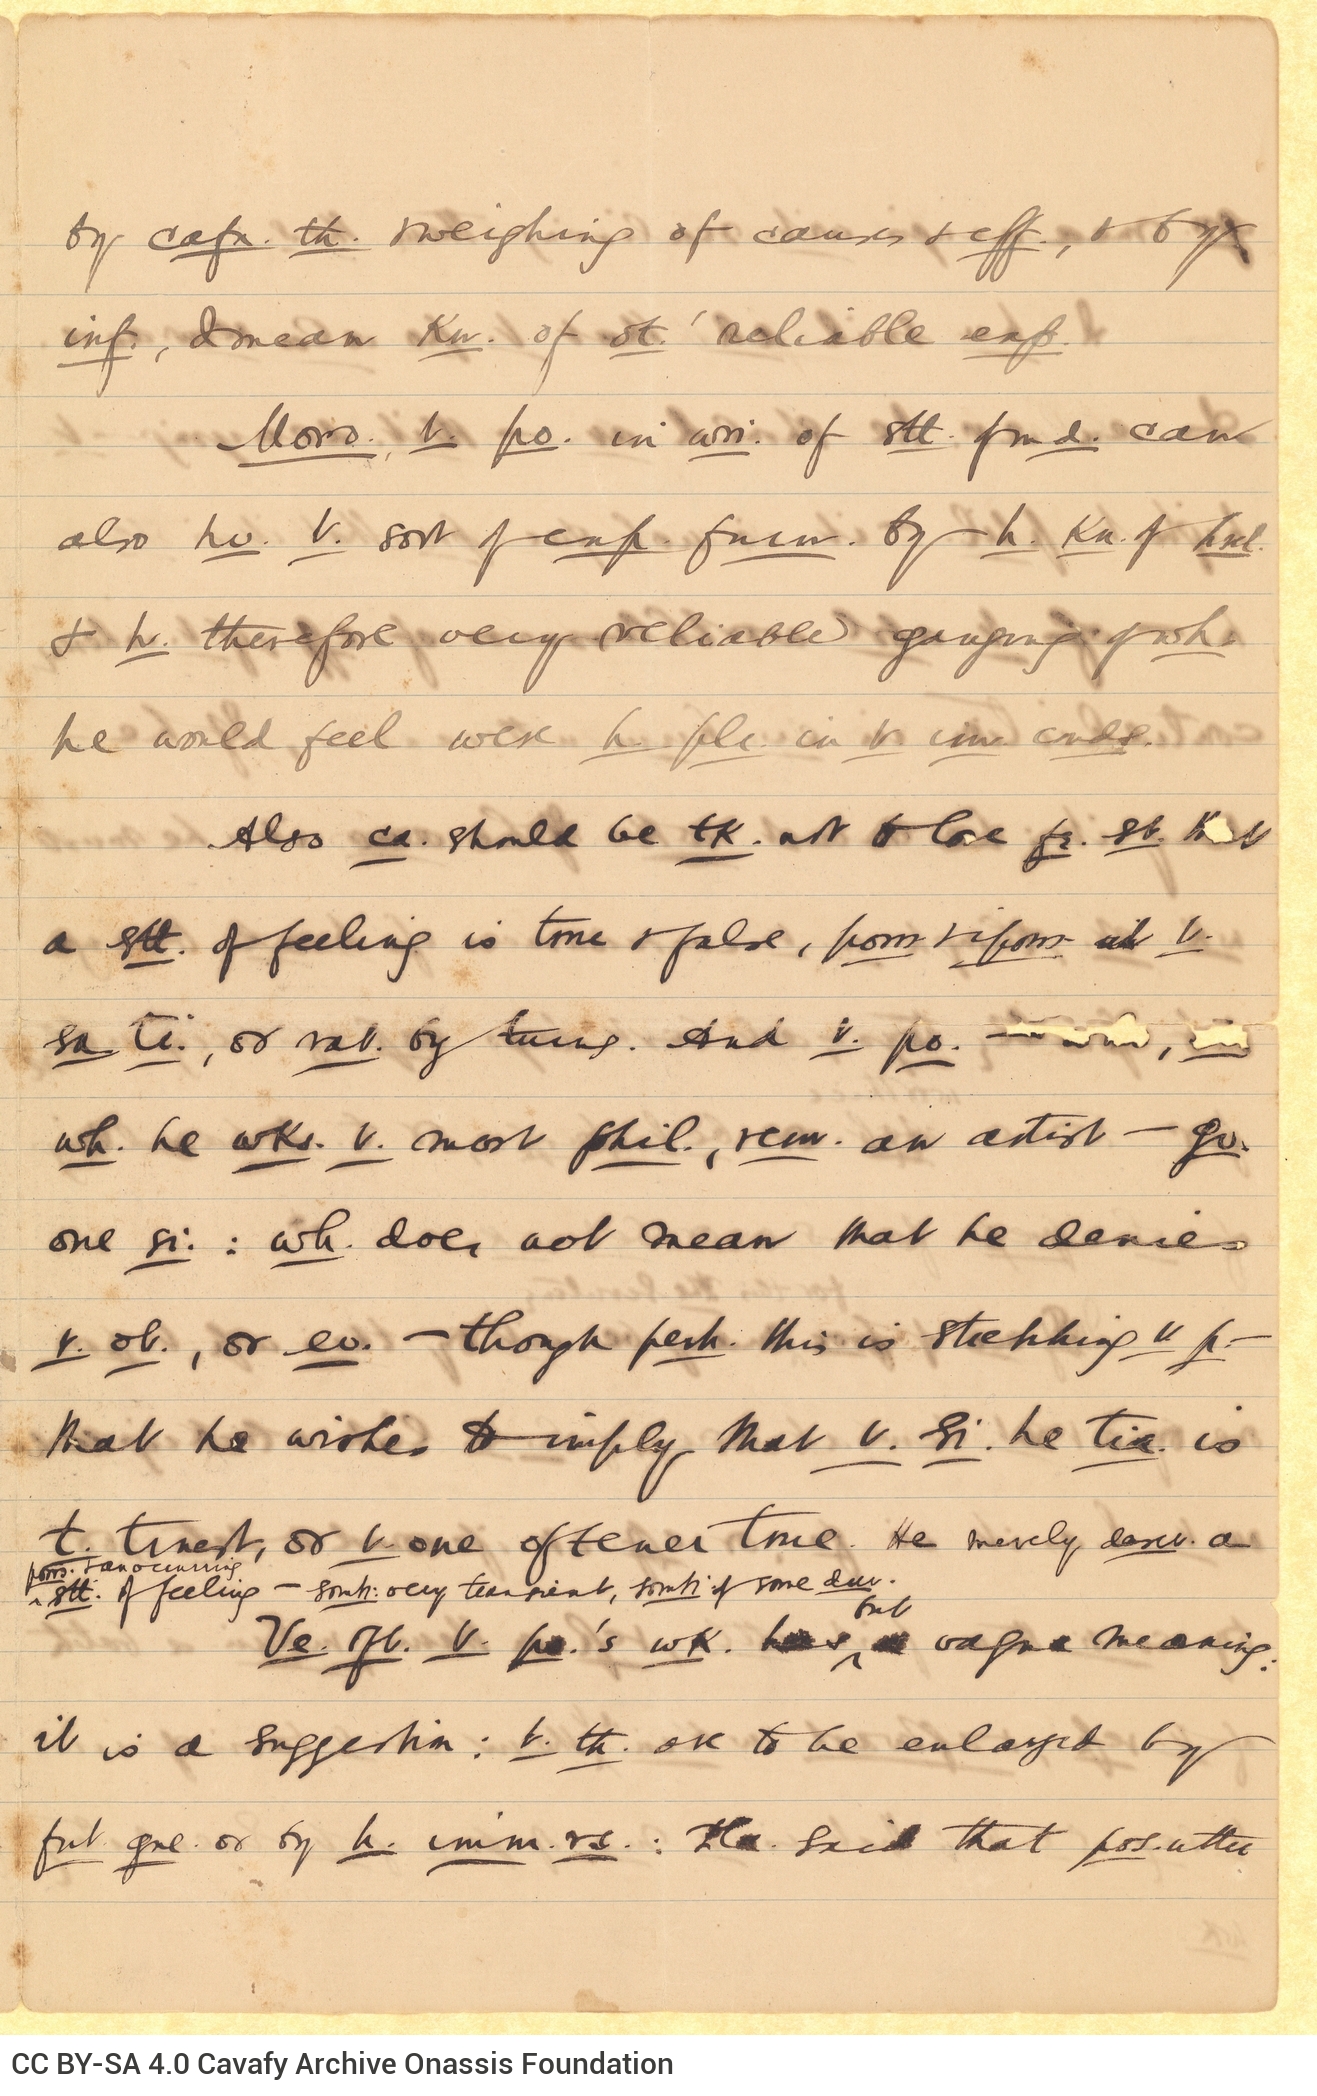 by cafx. th. & weighing of causes & eff., & by
inf., I mean Kn. of ot.' reliable exp.
Moro., t. po. in wri. of stt. of md. can
also hv. t. sort of exp. furn. by h. Kn. of hsl.
& h. therefore very reliable gauging of wh.
he would feel were h. plc. in t. im. conds.
Also ca. should be tk. not to lose fr. st. that
a stt. of feeling is true & false, poss & iposs at t.
sa ti., or rat. by turns. And t. po. — , in
wh. he wks. t. most phil., rem. an artist — gv.
one si. : wh. does not mean that he denies
t. ob., or ev. — though perh. this is stretching t. p. —
that he wishes to imply that t. si. he tre. is
t. truest, or t. one oftener true. He merely descr. a
poss. & an occurring
stt. of feeling — somti. very transient, somti. of some dur.
Ve. oft. t. po.'s wk. has but vague meaning:
it is a suggestion : t. th. are to be enlarged by
fut. gne. or by h. imm. rs. : Pla. said that pos. utter
CC BY-SA 4.0 Cavafy Archive Onassis Foundation